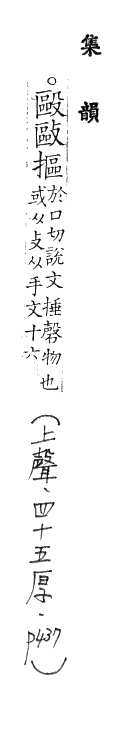 集韻
。毆敺摳
於口切說文捶磬物也
或从攴从手文十六
(上聲、四十五厚、p437)